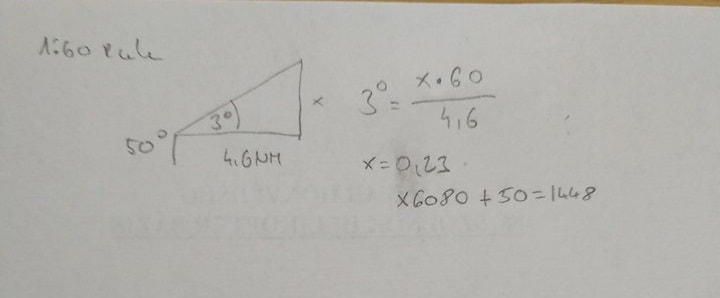 1:60 rule
50°
3°
x
4,6NM
3° = x·60 / 4,6
x = 0,23
x6080 + 50 = 1448